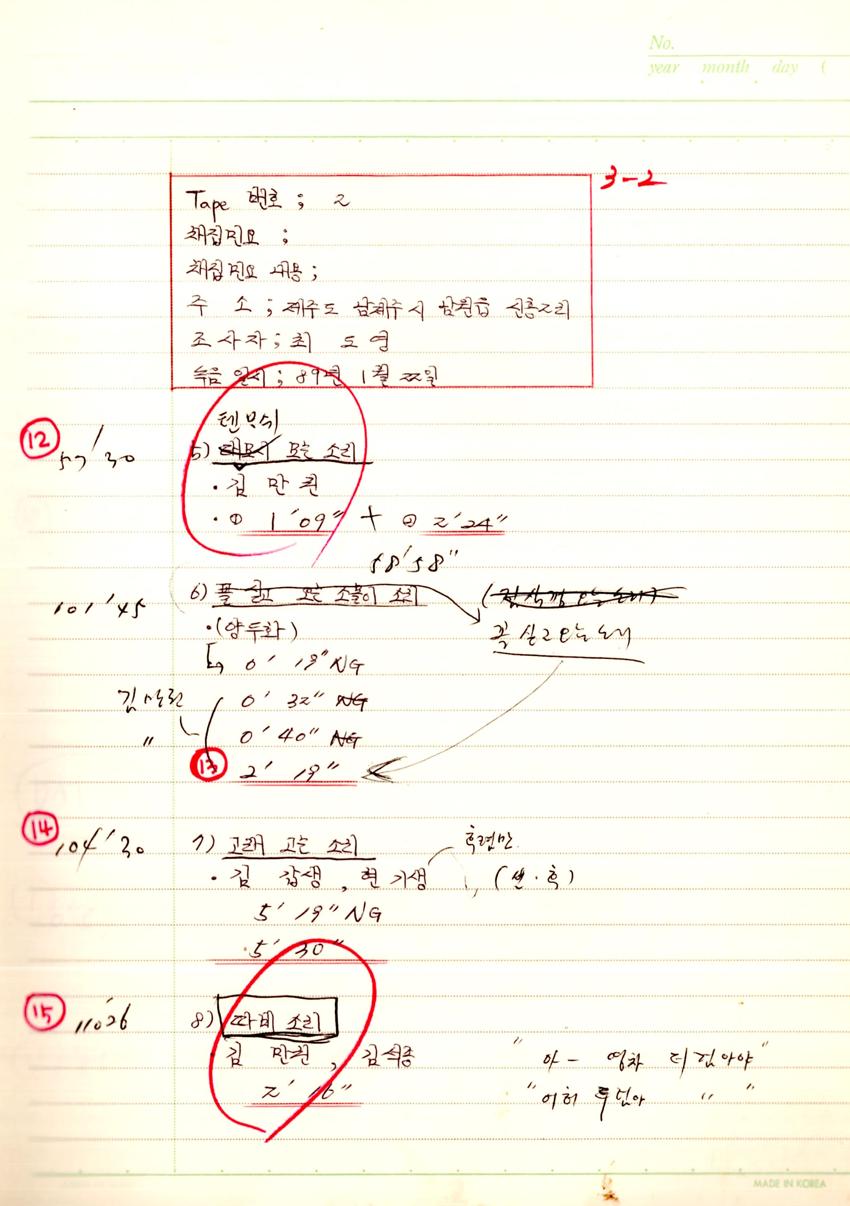 No.
year month day (
3-2
Tape 번호 ; 2
채집민요 ;
채집민요 내용 ;
주 소 ; 제주도 남제주시 남원읍 신흥2리
조사자 ; 최 도 영
녹음 일시 ; 89년 1월 22일
텐모쉬
12 57'30 5) 테모시 모는 소리
• 김 만 권
• ㉠ 1'09" + ㉡ 2'24"
58'58"
101'45 6) 풀 싣고 오는 소몰이 소리
꼭 싣고 오는 노래
• (양두화)
0' 19" NG
0' 32" NG
" 0' 40" NG
13 2' 19"
14 104'30 7) 고래 고는 소리 흑련만
• 김 갑생 , 현 기생 (선 · 흑)
5' 19" NG
5' 30"
15 110'26 8) 따비 소리
김 만권 , 김석종 " 아 - 영차 "
2' 16" " 어허 " "
MADE IN KOREA